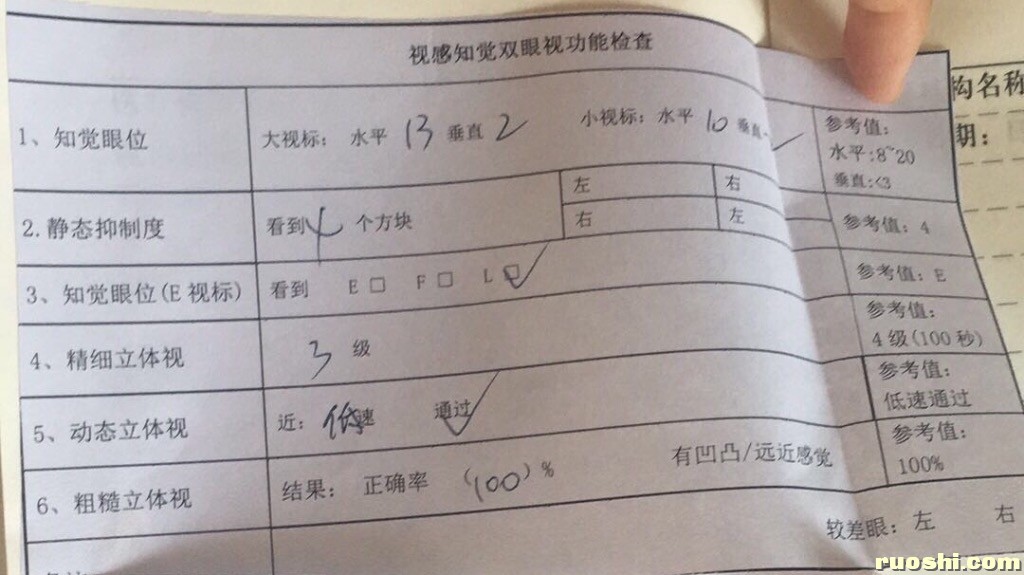 视感知觉双眼视功能检查
构名称
期：
1、知觉眼位 大视标： 水平 13 垂直 2 小视标：水平 10 垂直 参考值： 水平：8~20 垂直：<3
2.静态抑制度 看到 4 个方块 左 右 右 左 参考值：4
3、知觉眼位(E 视标) 看到 E □ F □ L □ ✓ 参考值：E
4、精细立体视 3 级 参考值： 4 级(100 秒)
5、动态立体视 近：低速 通过 ✓ 参考值： 低速通过
6、粗糙立体视 结果： 正确率 (100) % 有凹凸/远近感觉 参考值： 100%
较差眼：左 右
ruoshi.com